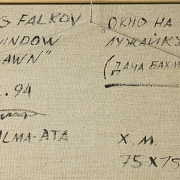 S FALKOV
WINDOW
AWN"
.94
LMA-ATA
ОКНО НА
ЛУЖАЙКУ
(ДАЧА БАХМ
Х. М.
75X75